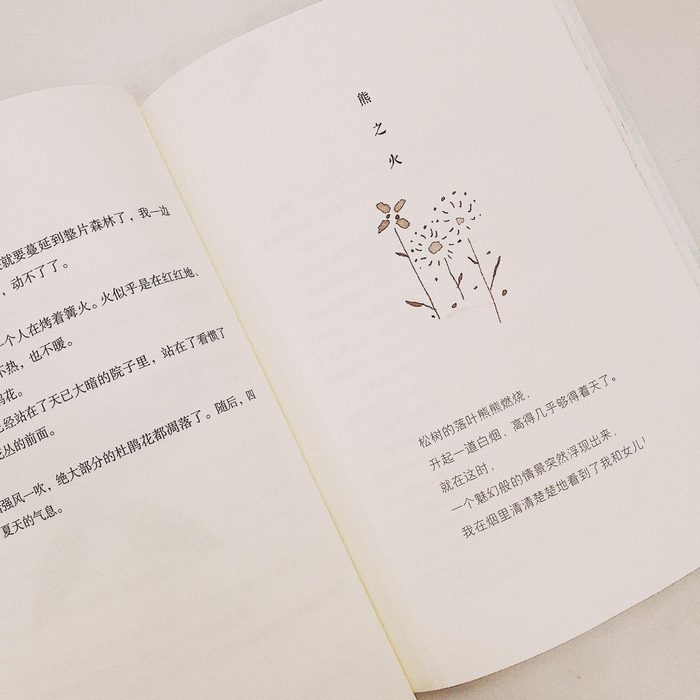 就要蔓延到整片森林了，我一边
，动不了了。
个人在烤着篝火。火似乎是在红红地、
不热，也不暖。
鹃花。
经站在了天已大暗的院子里，站在了看惯了
丛的前面。
强风一吹，绝大部分的杜鹃花都凋落了。随后，四
夏天的气息。
熊之火
松树的落叶熊熊燃烧，
升起一道白烟，高得几乎够得着天了。
就在这时，
一个魅幻般的情景突然浮现出来，
我在烟里清清楚楚地看到了我和女儿！